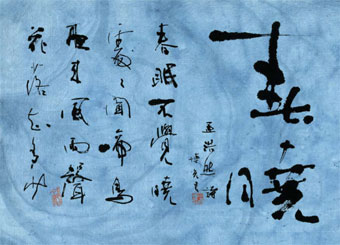 春曉
孟浩然詩
春眠不覺曉
處處聞啼鳥
夜來風雨聲
花落知多少